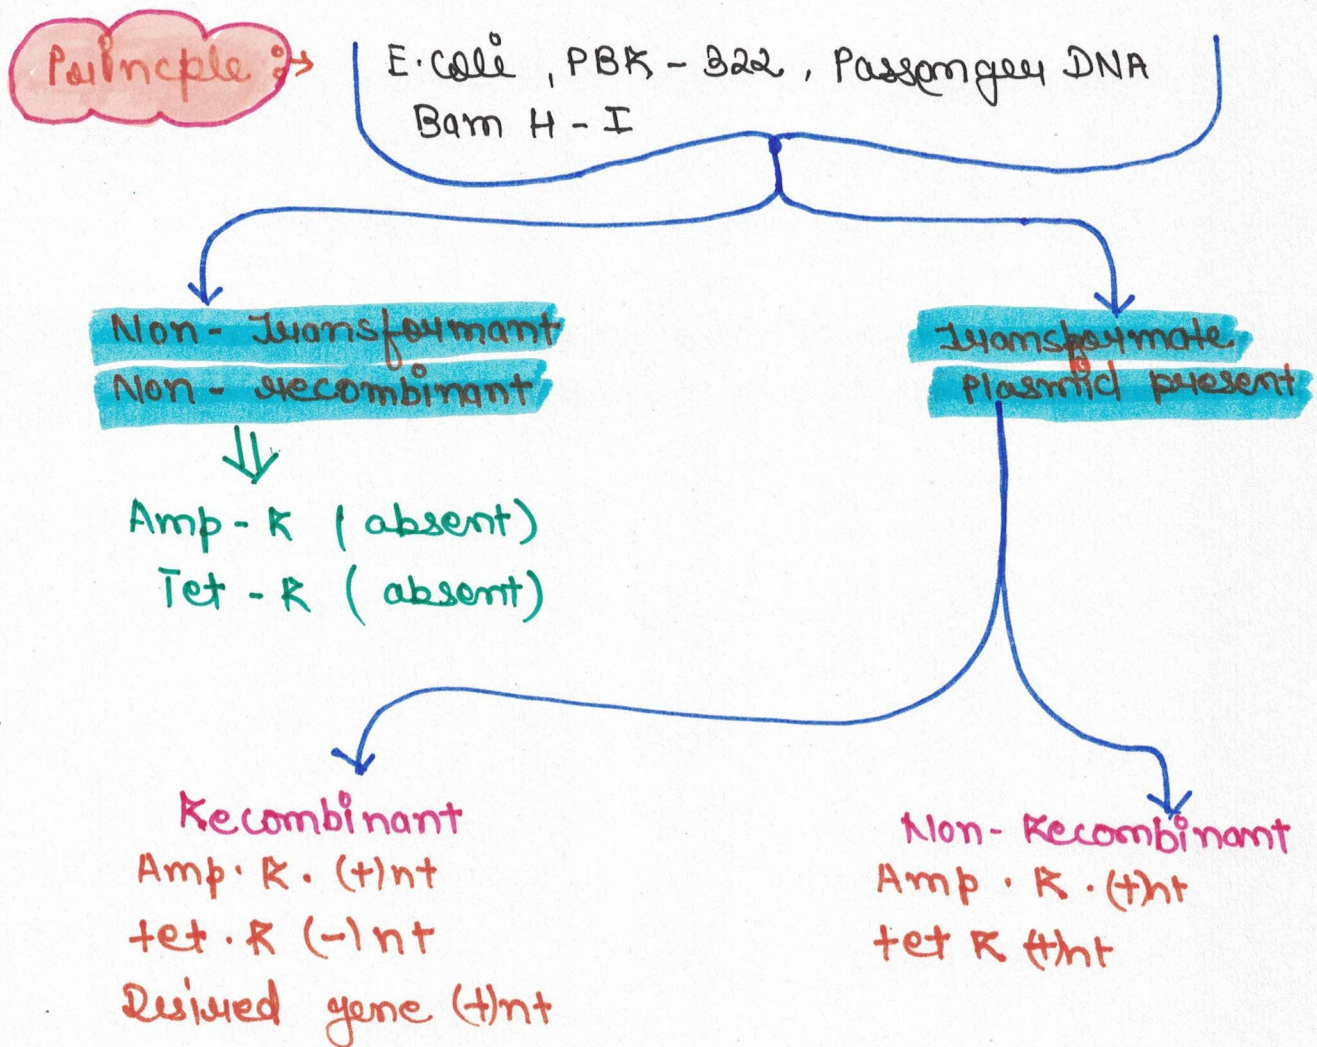 Principle :→
E.coli, PBR - 322, Passenger DNA
Bam H - I
Non - Transformant
Non - recombinant
Transformate
Plasmid present
Amp - R (absent)
Tet - R (absent)
Recombinant
Amp. R. (+)nt
tet. R (-)nt
Desired gene (+)nt
Non - Recombinant
Amp. R. (+)nt
tet R (+)nt